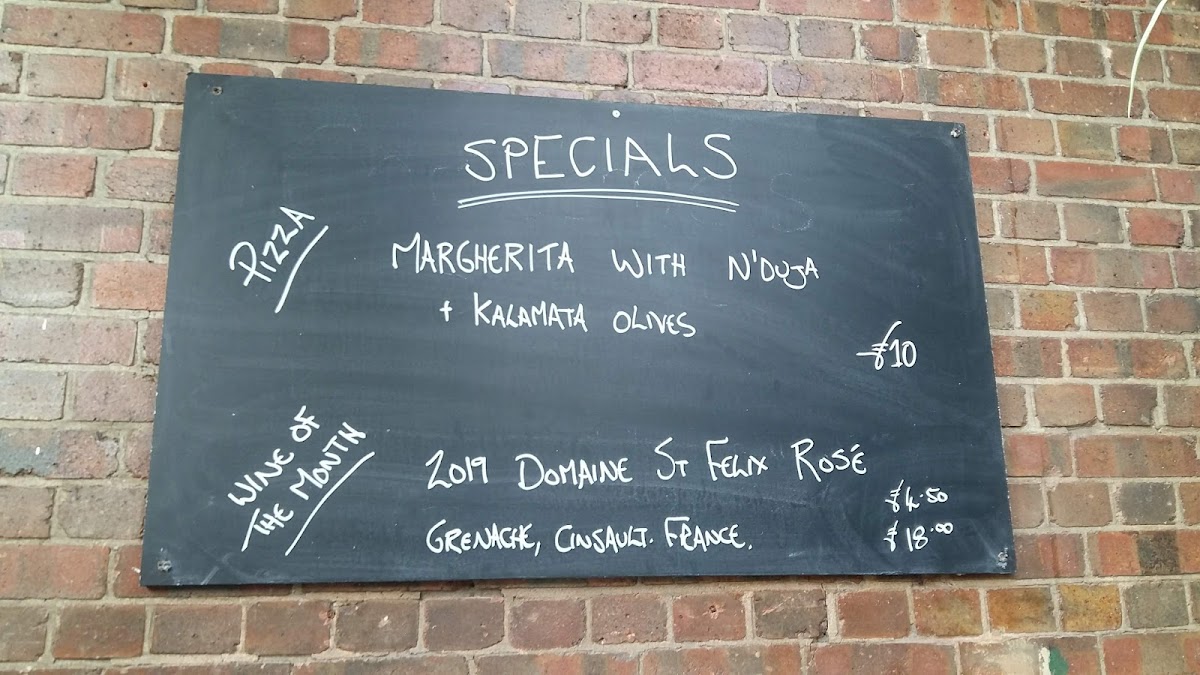 SPECIALS
PIZZA
MARGHERITA WITH N'DUJA
+ KALAMATA OLIVES
£10
WINE OF
THE MONTH
2019 DOMAINE ST FELIX ROSÉ
£4.50
GRENACHE, CINSAULT. FRANCE.
£18.00